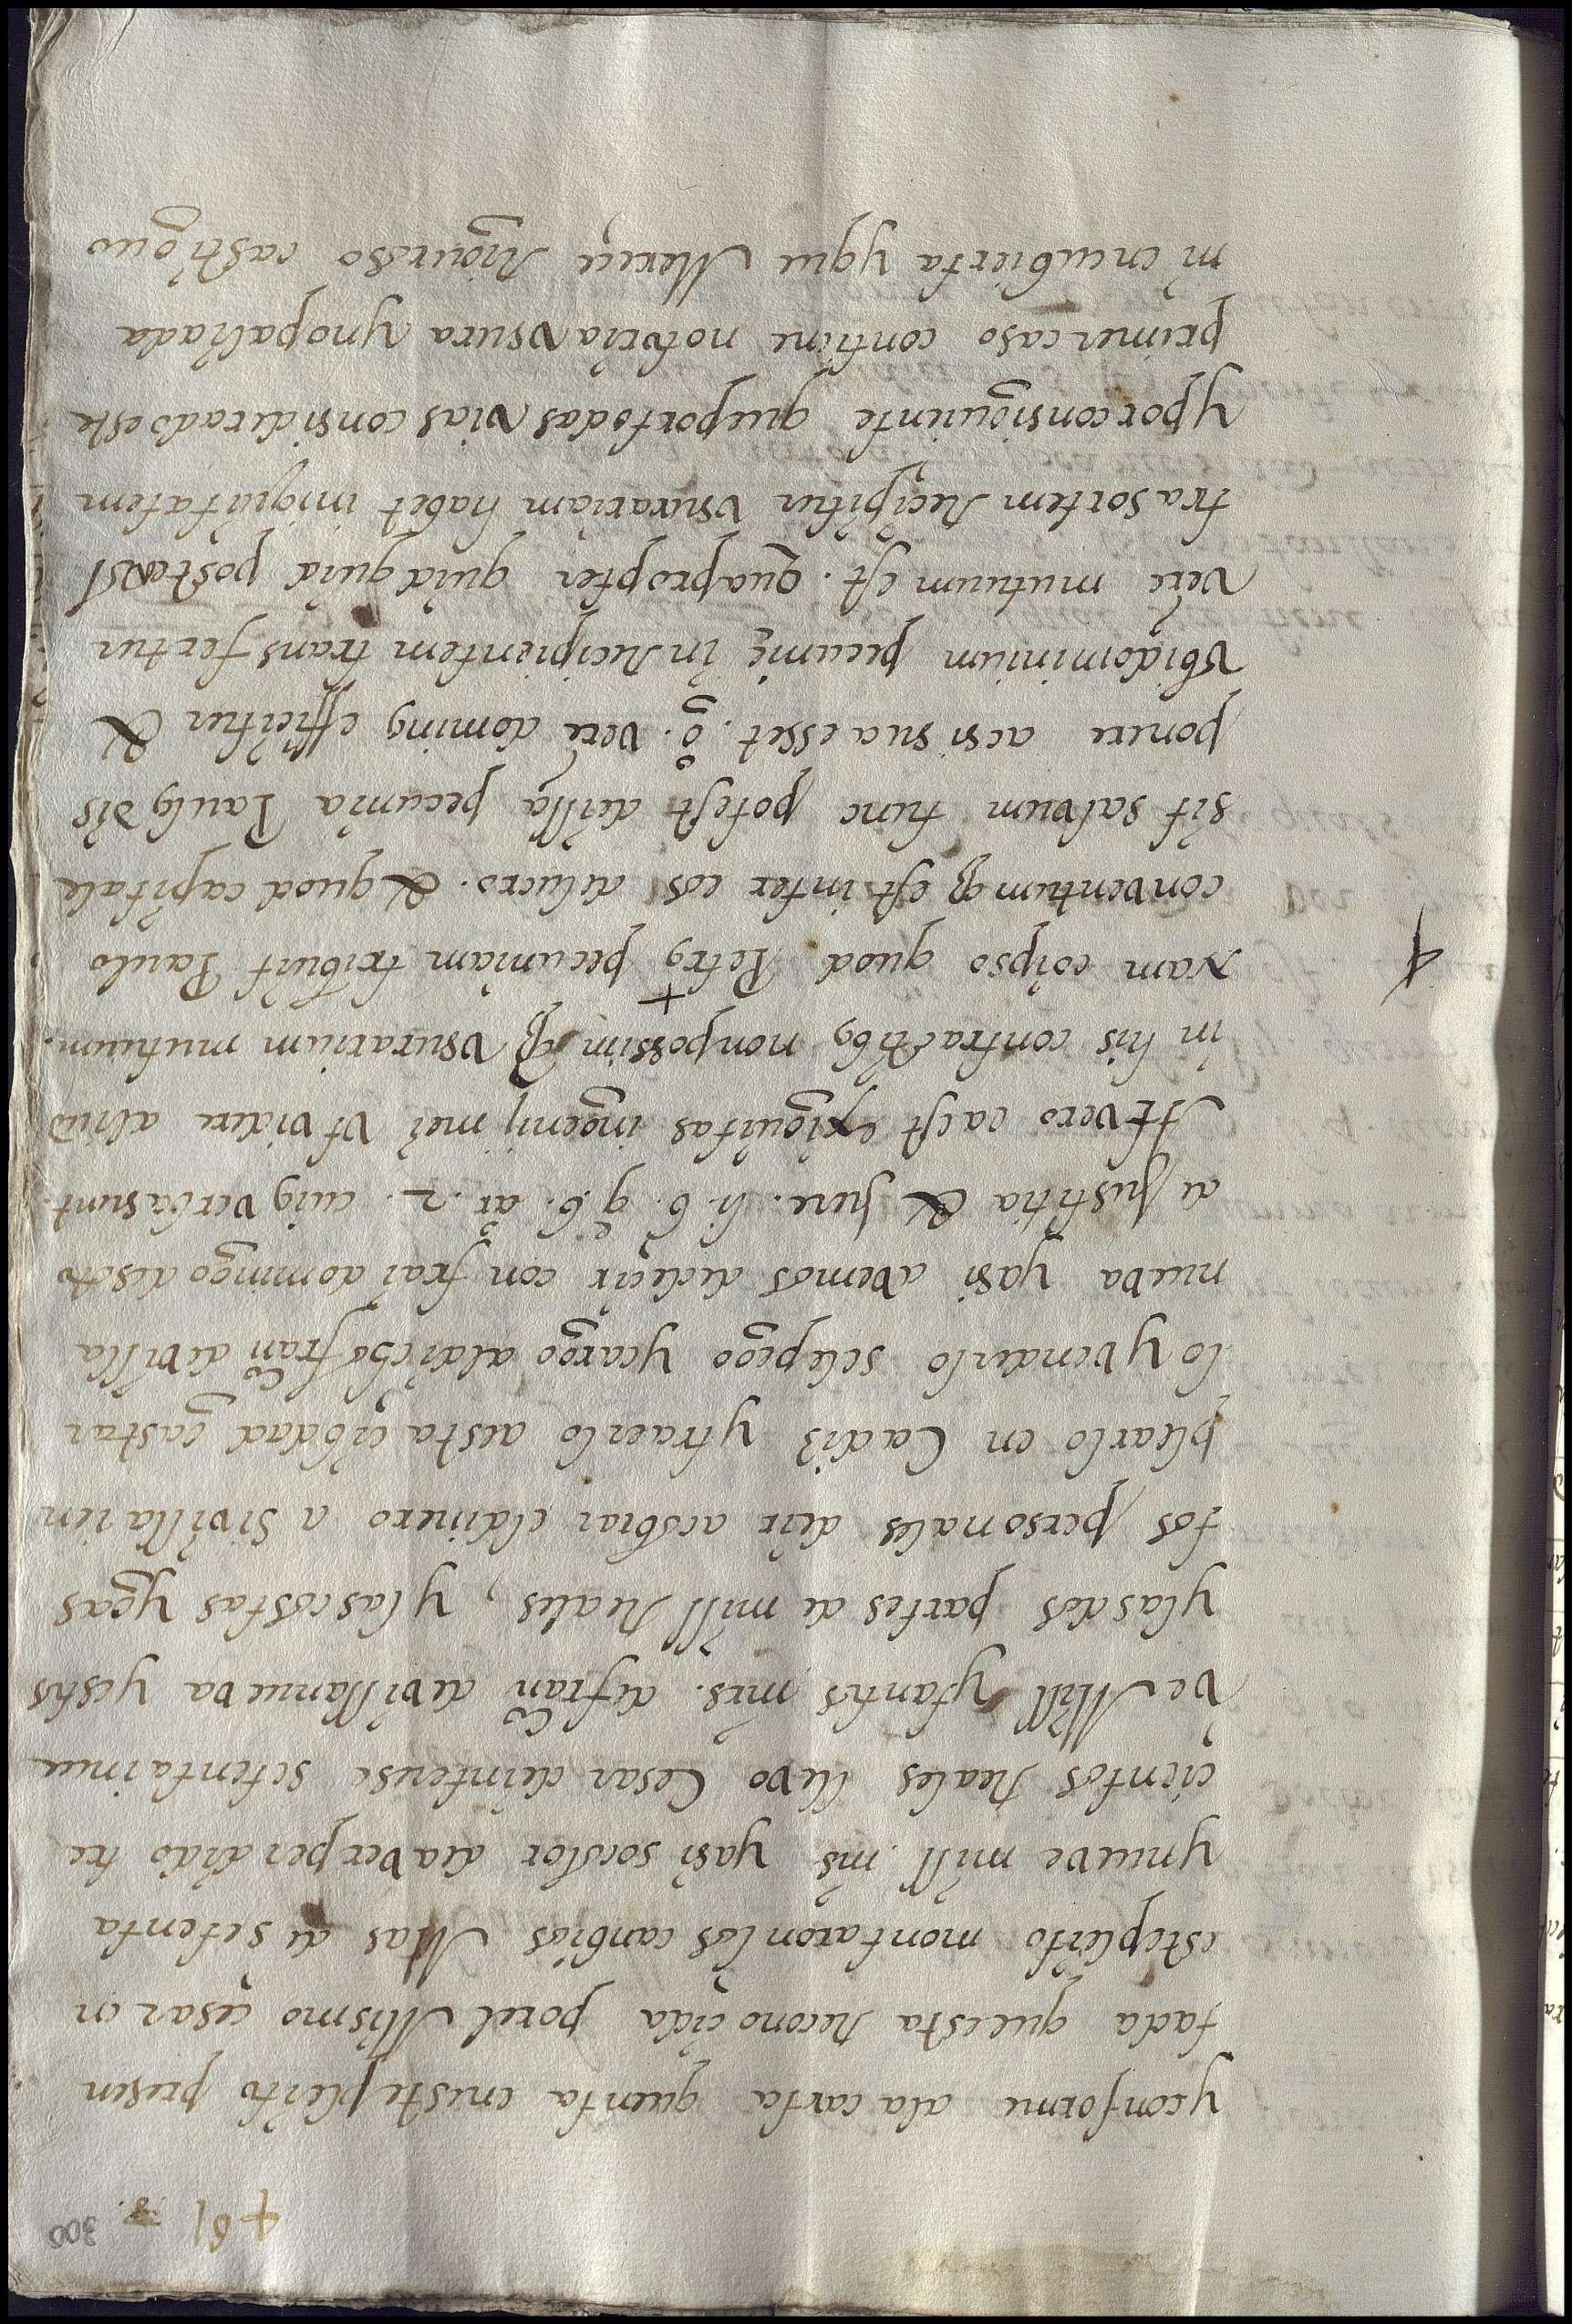 461
300
y conforme a la carta quenta en este pleito presen
tada que esta Reconocida por el Mismo cesar en
este pleito montaron los canbios Mas de setenta
y nueve mill ms y asi so color de aver perdido tre
cientos Reales llevo Cesar de interese setenta i nue
ve Mill y tantos mrs. de franco de villanueva y estos
y las dos partes de mill Reales, y las costas y gas
tos personales de ir a cobrar el dinero a Sivilla i en
plearlo en Cadiz y traerlo a esta cibdad gastar
lo y venderlo se le pego y cargo al dicho franco de villa
nueva y asi avemos de deçir con frai domingo de soto
de justitia & jure. li. 6. q. 6. ar. 2. cuius verba sunt.
At vero ea est exiguitas ingenij mei ut videre aliud
in his contractibus non possim q usurarium mutuum.
+
Nam eo ipso quod Petrus pecuniam tribuit Paulo
conventumq est inter eos de lucro. & quod capitale
sit salvum tunc potest de illa pecunia Paulus dis
ponere ac si sua esset. g. vere dominus efficitur &
ubi dominium pecunię in Recipientem transfertur
vere mutuum est. Quapropter quidquid postea ul
tra sortem Recipitur usurariam habet iniquitatem
y por consiguiente que por todas vias considerado este
primer caso contiene notoria usura y no paliada
ni encubierta y que Mereçe Riguroso castiguo